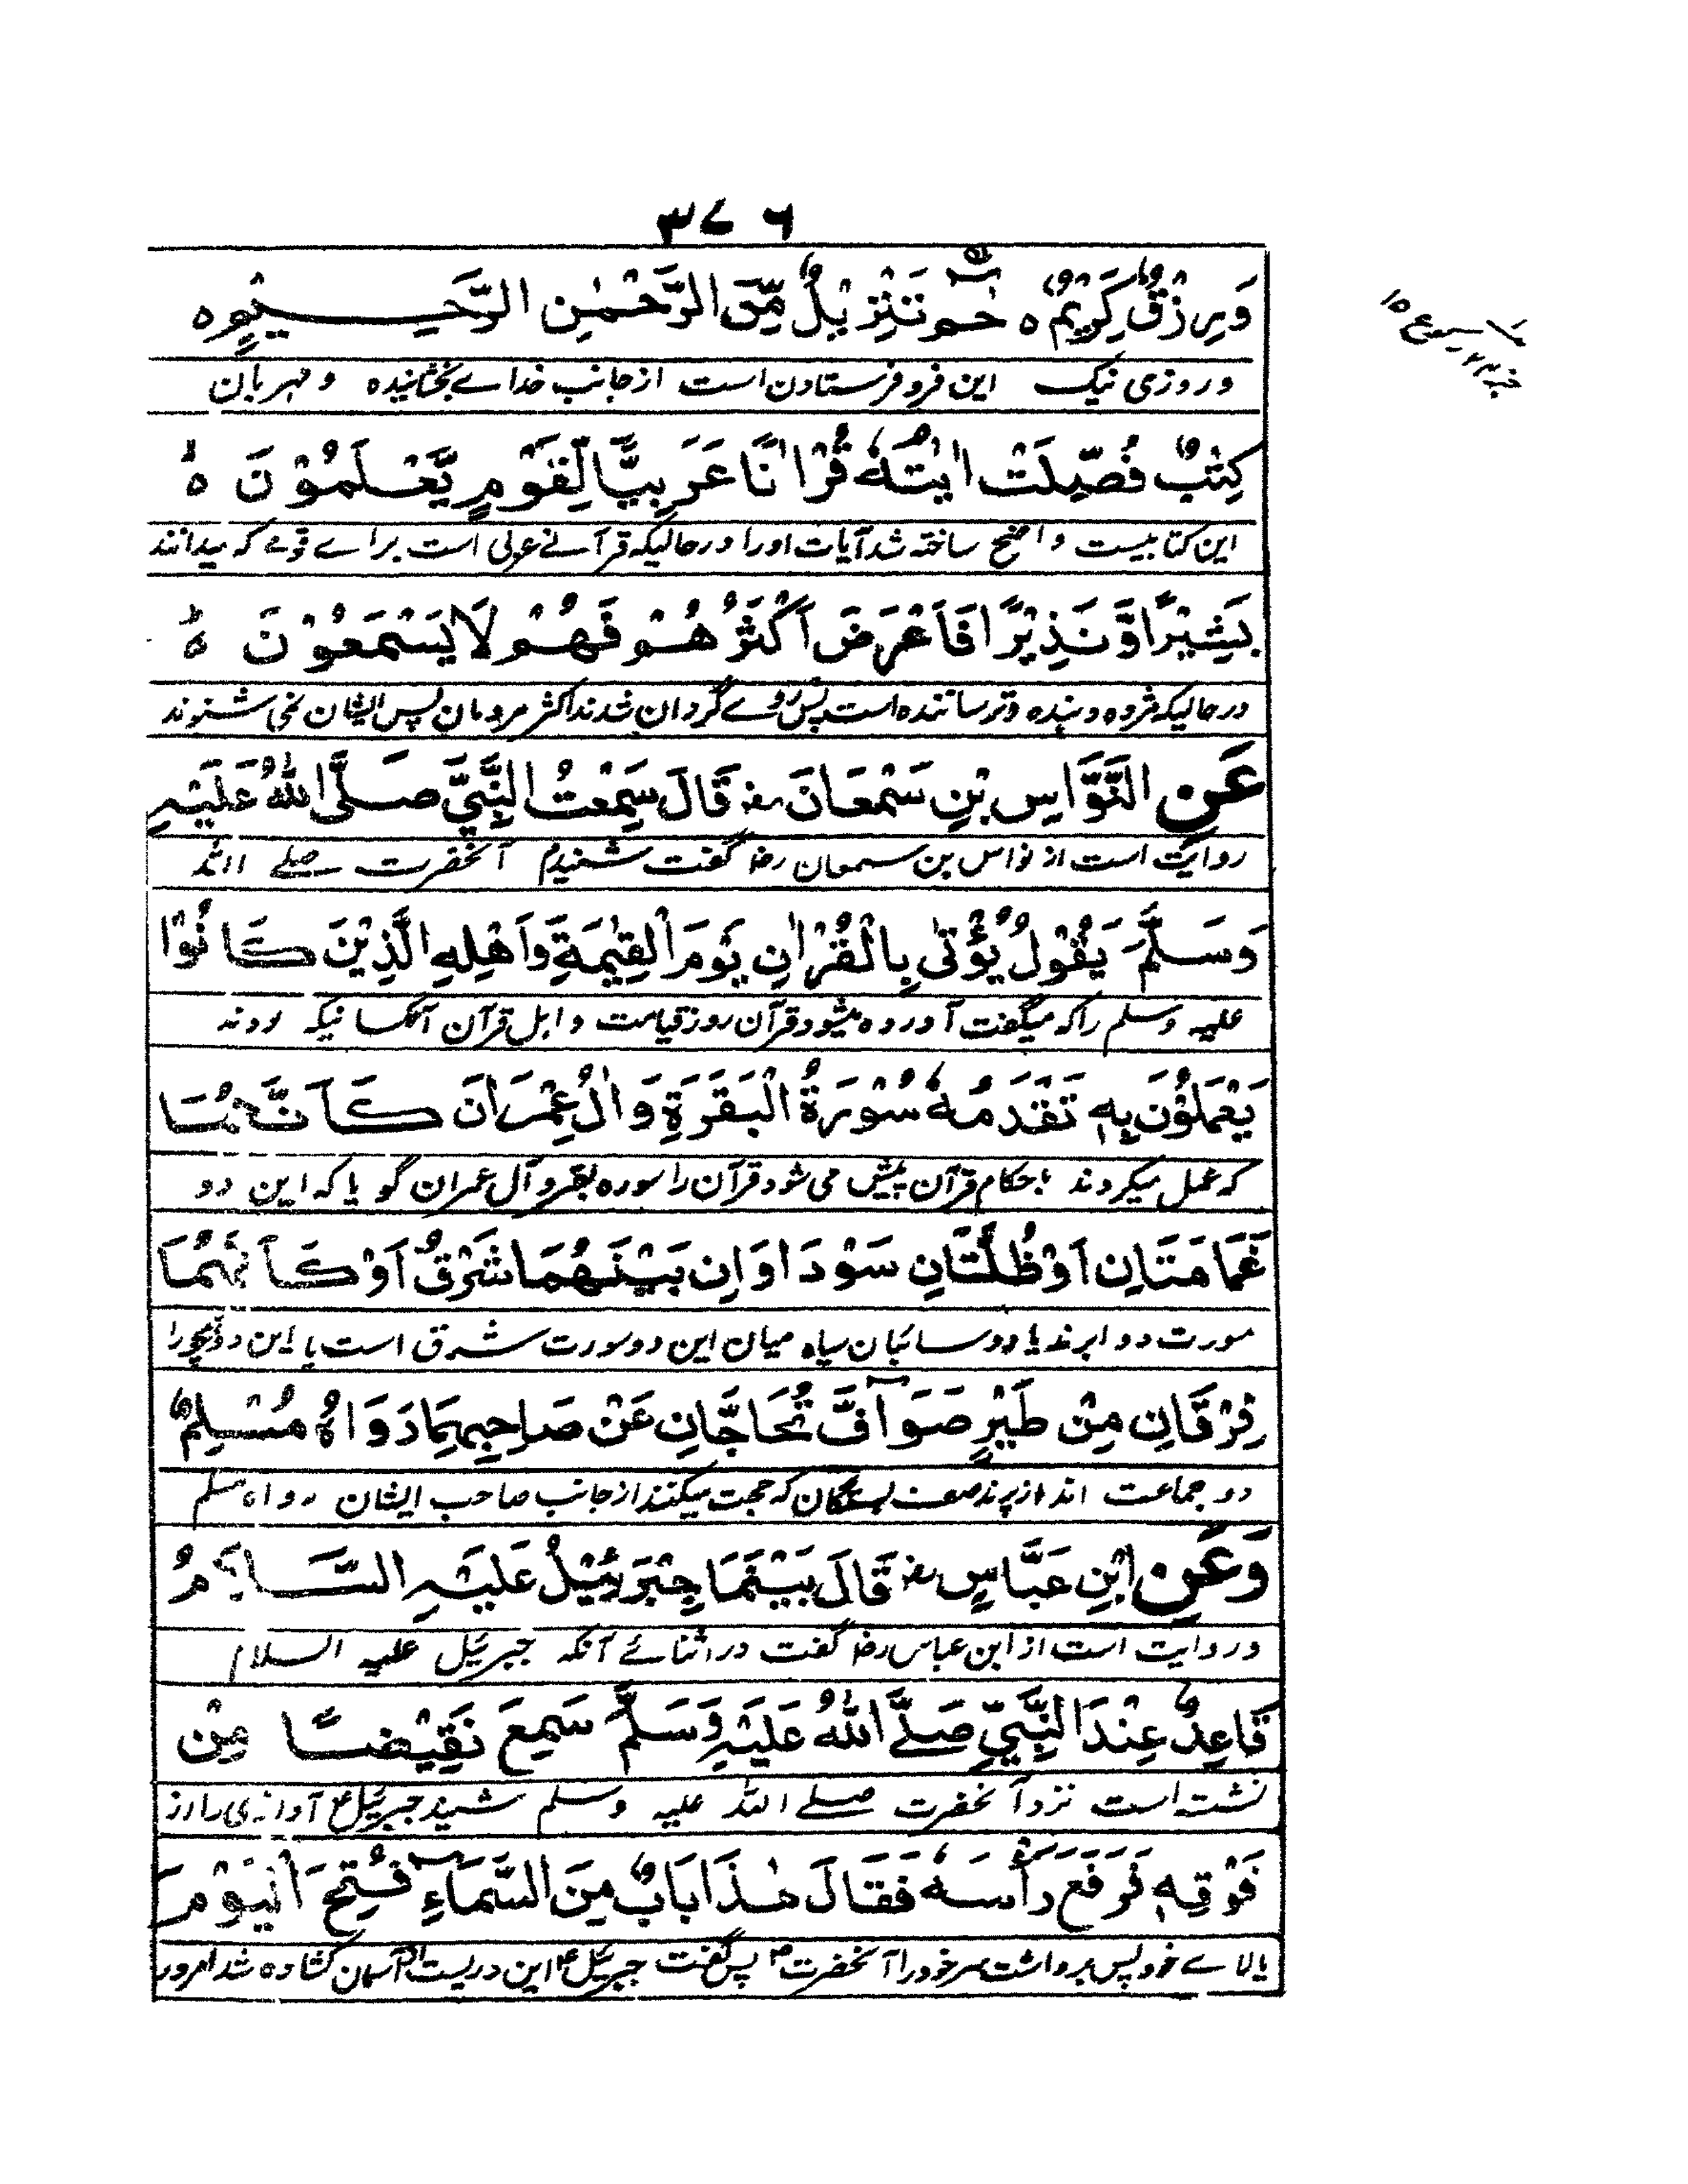 ٣٧٦
وَرِزْقٌ كَرِيْمٌ ه حٰمٓ تَنْزِيْلٌ مِّنَ الرَّحْمٰنِ الرَّحِيْمِ ه
و روزی نیک این فرو فرستادن است از جانب خداے بخشاینده و مهربان
كِتٰبٌ فُصِّلَتْ اٰيٰتُهٗ قُرْاٰنًا عَرَبِيًّا لِّقَوْمٍ يَّعْلَمُوْنَ ه
این کتابیست واضح ساخته شد آیات اورا درحالیکه قرآنے عربی است براے قومے که میدانند
بَشِيْرًا وَّنَذِيْرًا فَاَعْرَضَ اَكْثَرُهُمْ فَهُمْ لَا يَسْمَعُوْنَ ه
درحالیکه مژده دهنده و ترساننده است پس روے گردان شدند اکثر مردمان پس ایشان نمی شنوند
عَنِ النَّوَّاسِ بْنِ سَمْعَانَ رض قَالَ سَمِعْتُ النَّبِيَّ صَلَّى اللّٰهُ عَلَيْهِ
روایت است از نواس بن سمعان رضا گفت شنیدم آنحضرت صلے الله
وَسَلَّمَ يَقُوْلُ يُؤْتٰى بِالْقُرْاٰنِ يَوْمَ الْقِيٰمَةِ وَاَهْلِهِ الَّذِيْنَ كَانُوْا
علیه وسلم راکه میگفت آورده میشود قرآن روز قیامت و اهل قرآن آنکسانیکه بودند
يَعْمَلُوْنَ بِهٖ تَقَدَمُهٗ سُوْرَةُ الْبَقَرَةِ وَاٰلُ عِمْرَانَ كَاَنَّهُمَا
که عمل میکردند باحکام قرآن پیش می شود قرآن را سوره بقر و آل عمران گویا که این دو
غَمَامَتَانِ اَوْ ظُلَّتَانِ سَوْدَاوَانِ بَيْنَهُمَا شَرْقٌ اَوْ كَاَنَّهُمَا
سورت دو ابرند یا دو سائبان سیاه میان این دو سورت شرق است یا این دو
فِرْقَانِ مِنْ طَيْرٍ صَوَآفَّ تُحَاجَّانِ عَنْ صَاحِبِهِمَا رَوَاهُ مُسْلِمٌ
دو جماعت اند از پرند صف بستگان که حجت میکنند از جانب صاحب ایشان رواه مسلم
وَعَنِ ابْنِ عَبَّاسٍ رض قَالَ بَيْنَمَا جِبْرَئِيْلُ عَلَيْهِ السَّلَامُ
و روایت است از ابن عباس رضا گفت در اثنائے آنکه جبرئیل علیه السلام
قَاعِدٌ عِنْدَ النَّبِيِّ صَلَّے اللّٰهُ عَلَيْهِ وَسَلَّمَ سَمِعَ نَقِيْضًا مِنْ
نشسته است نزد آنحضرت صلے الله علیه وسلم شنید جبرئیل ع آوازی را از
فَوْقِهٖ فَرَفَعَ رَأْسَهٗ فَقَالَ هٰذَا بَابٌ مِنَ السَّمَآءِ فُتِحَ الْيَوْمَ
بالاے خود پس برداشت سر خود را آنحضرت ص پس گفت جبرئیل ع این دریست از آسمان کشاده شد امروز